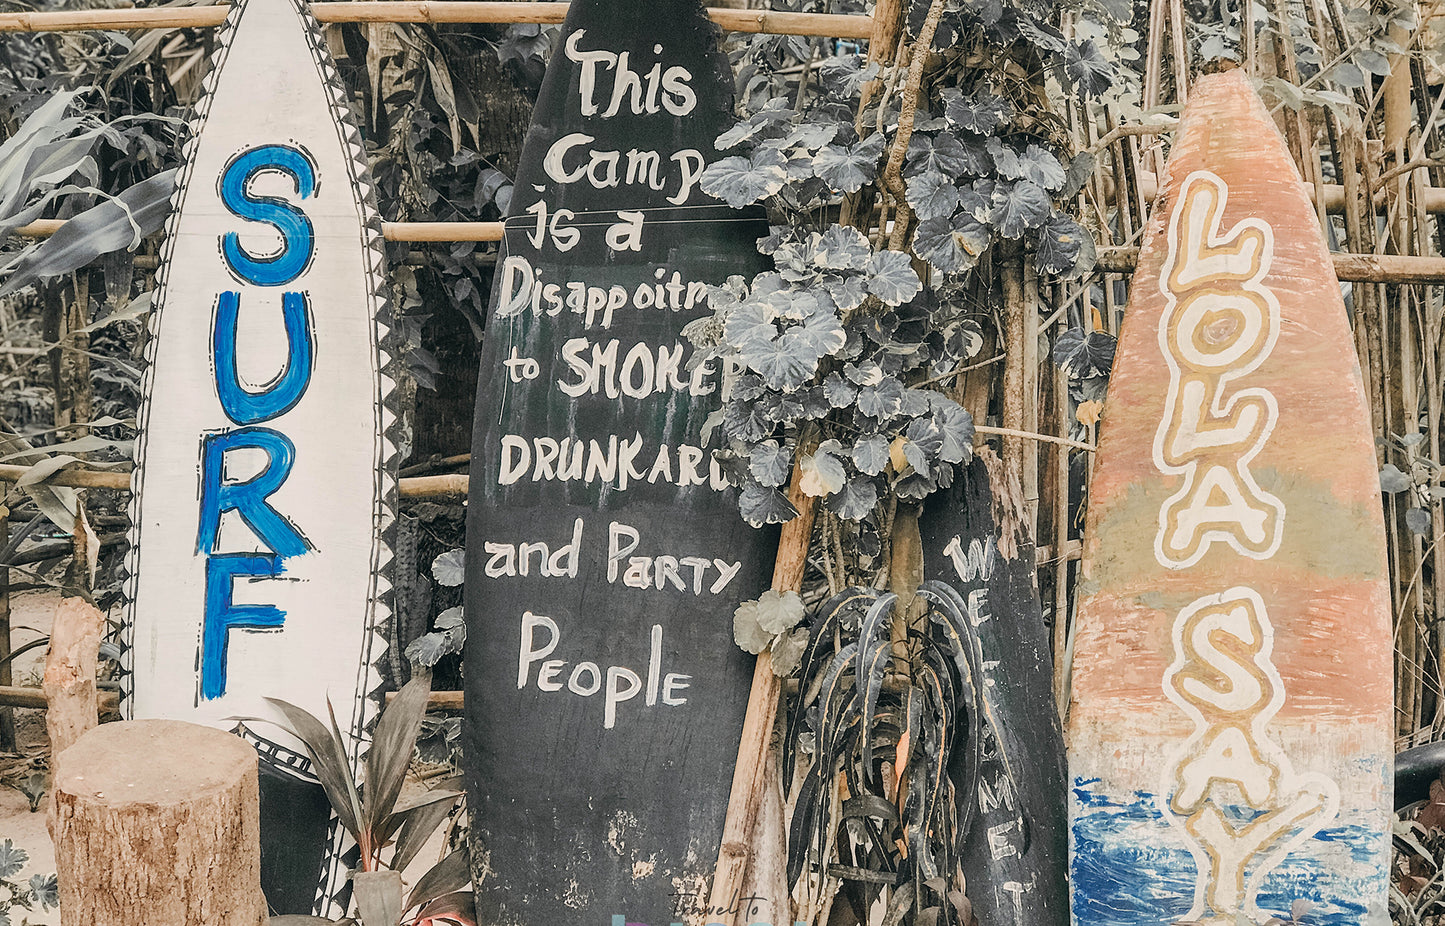 SURF
This
Camp
is a
Disappoitm
to SMOKER
DRUNKARD
and PARTY
PEOPlE
LOLA SAY
Travel to